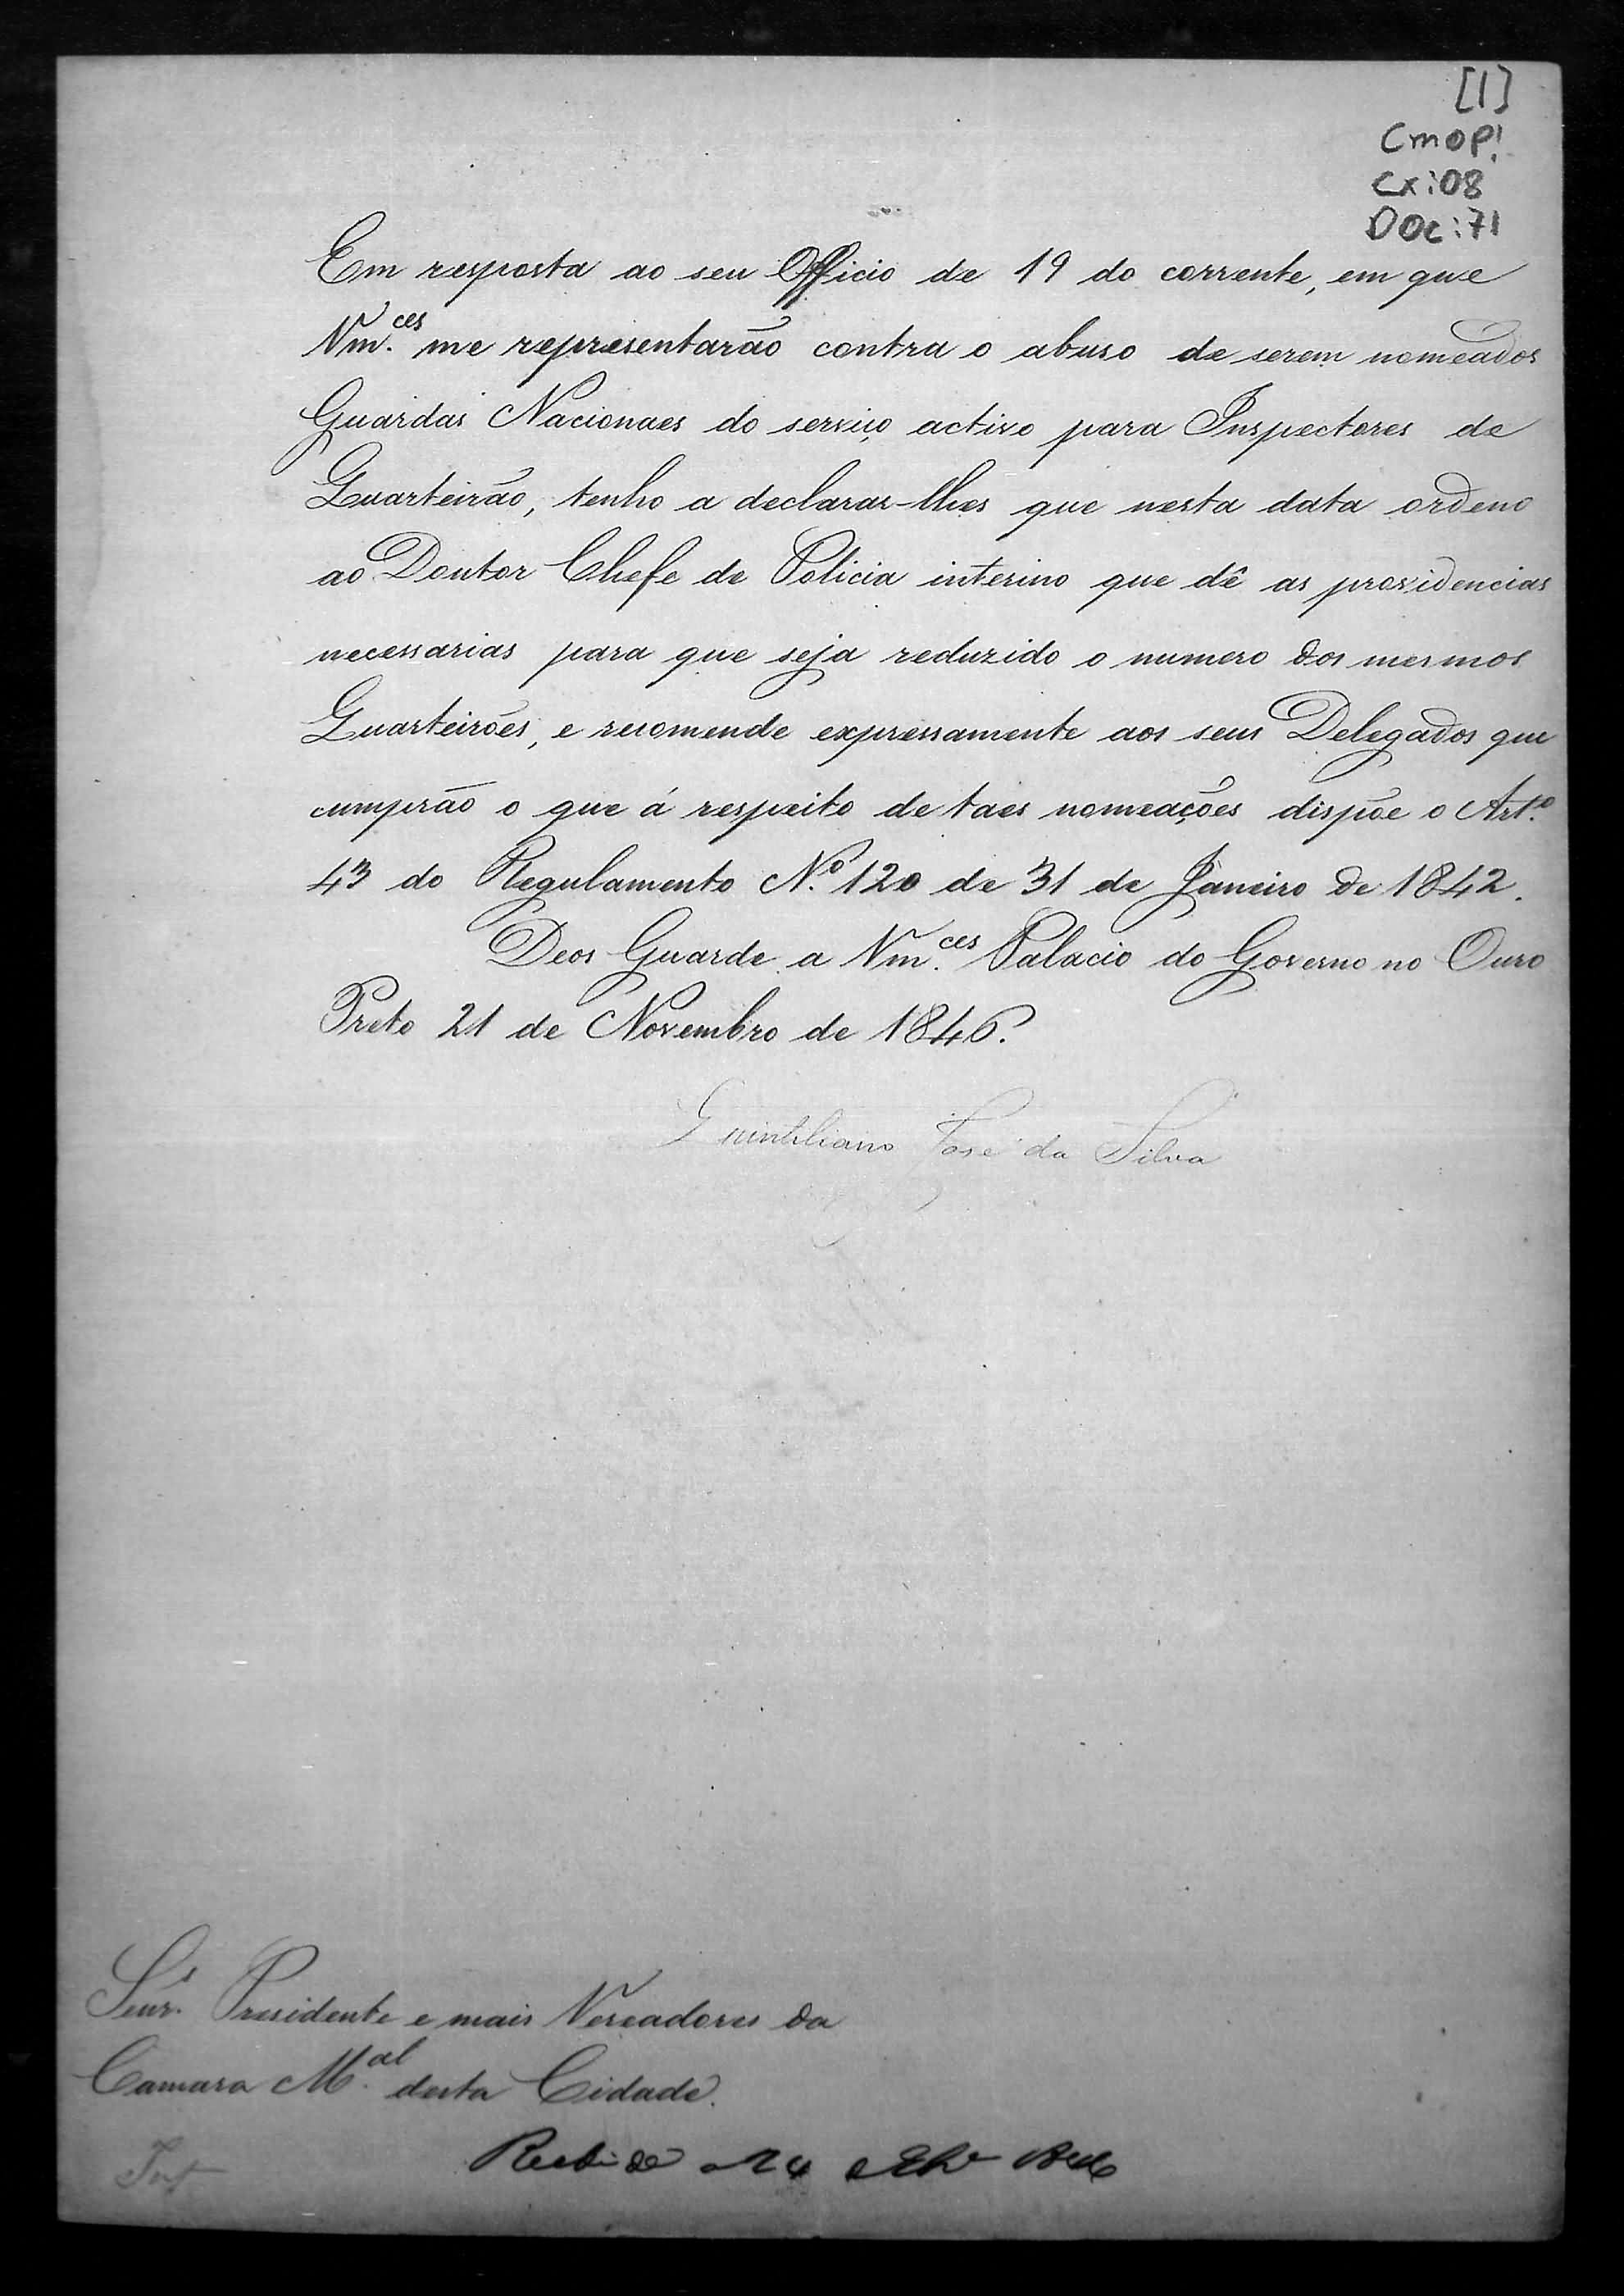 [1]
CMOP!
Cx:08
DOc:71
Em resposta ao seu Officio de 19 do corrente, em que
Vm.ces me representarão contra o abuso de serem nomeados
Guardas Nacionaes do serviço activo para Inspectores de
Quarteirão, tenho a declarar-lhes que nesta data ordeno
ao Doutor Chefe de Policia interino que dê as providencias
necessarias para que seja reduzido o numero dos mesmos
Quarteirões, e recomende expressamente aos seus Delegados que
cumprão o que á respeito de taes nomeações dispõe o Art.o
43 do Regulamento N.o 120 de 31 de Janeiro de 1842.
Deos Guarde a Vm.ces Palacio do Governo no Ouro
Preto 21 de Novembro de 1846.
Quintiliano José da Silva
Senr.s Presidente e mais Vereadores da
Camara M.al desta Cidade.